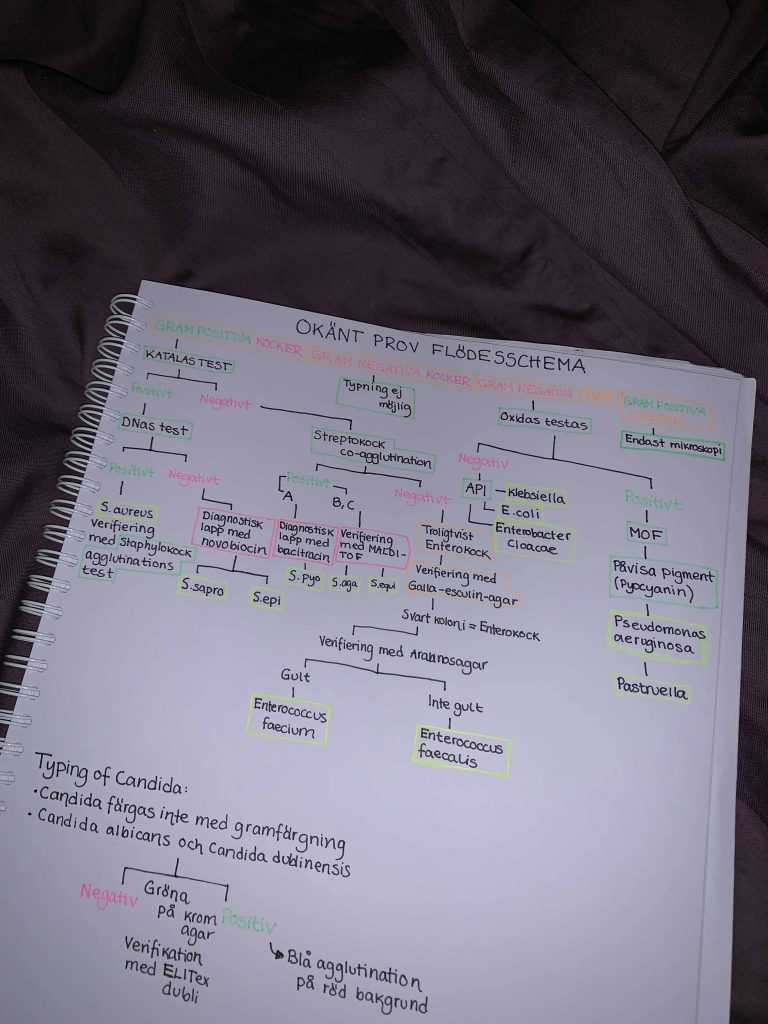 OKÄNT PROV FLÖDESSCHEMA
GRAM POSITIVA KOCKER
GRAM NEGATIVA KOCKER
GRAM NEGATIVA
GRAM POSITIVA
KATALAS TEST
Positivt
Negativt
DNas test
Positivt
Negativt
S. aureus
Verifiering
med Staphylokock
agglutinations
test
Diagnostisk
lapp med
novobiocin
S.sapro
S.epi
Streptokock
co-agglutination
Positivt
A
B,C
Negativt
Diagnostisk
lapp med
bacitracin
S. pyo
Verifiering
med MALDI-
TOF
S.aga
S.equi
Troligtvist
Enterokock
Verifiering med
Galla-esculin-agar
Svart koloni = Enterokock
Verifiering med Arabinosagar
Gult
Inte gult
Enterococcus
faecium
Enterococcus
faecalis
Typning ej
möjlig
Oxidas testas
Negativ
API
Klebsiella
E.coli
Enterobacter
Cloacae
Positivt
MOF
Påvisa pigment
(Pyocyanin)
Pseudomonas
aeruginosa
Pastruella
Endast mikroskopi
Typing of Candida:
• Candida färgas inte med gramfärgning
• Candida albicans och Candida dublinensis
Negativ
Gröna
på krom
agar
Positiv
Verifikation
med ELITex
dubli
Blå agglutination
på röd bakgrund